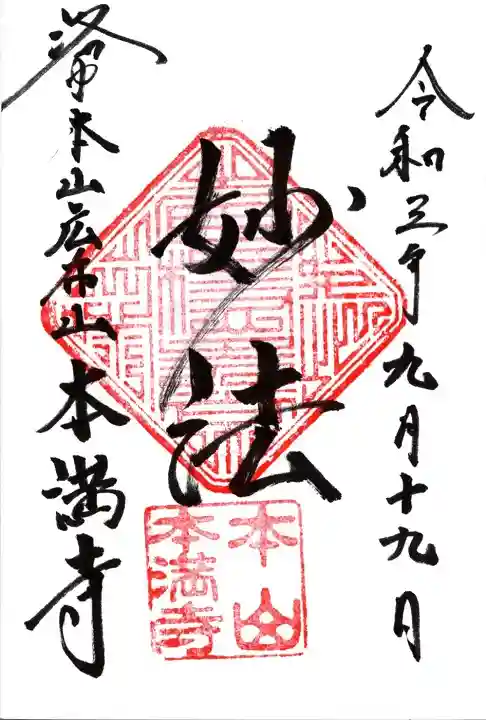 令和三年九月十九日
妙法
洛本山広布山本満寺
本山
本満寺